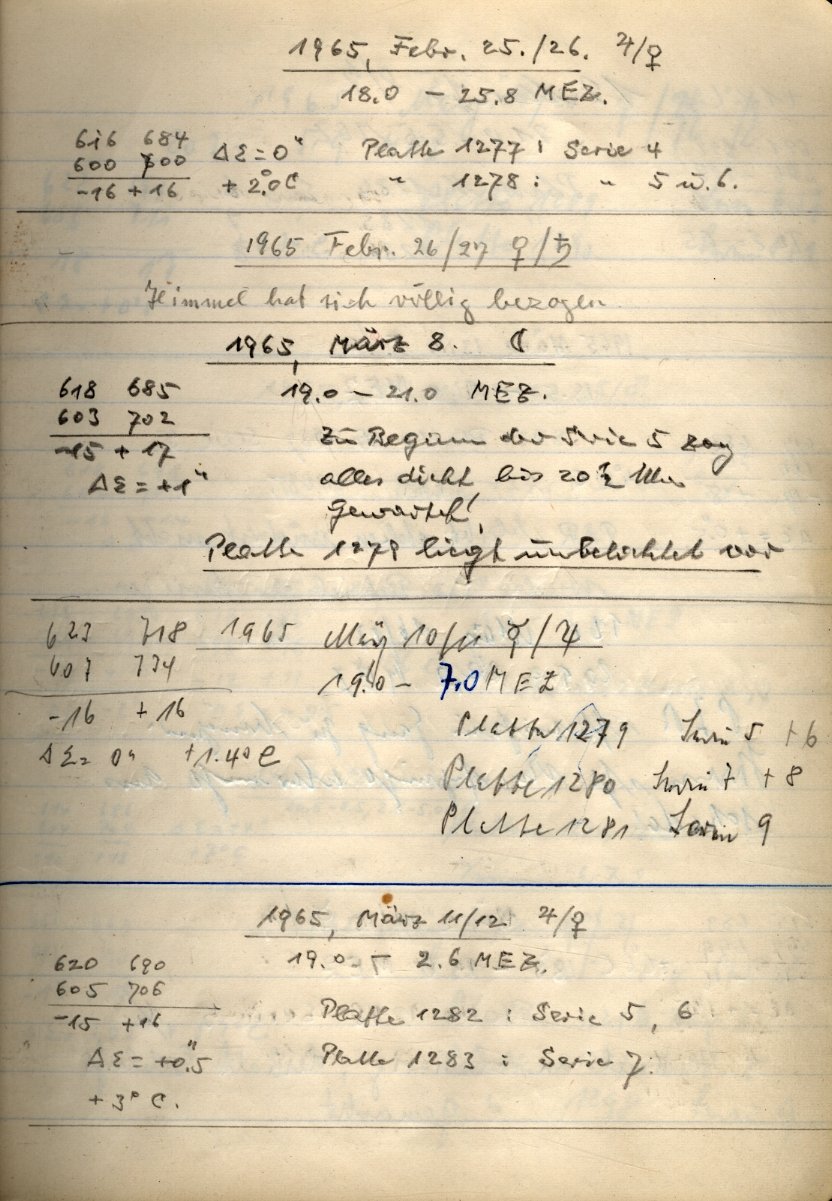 1965, Febr. 25./26. ♃/♀
18.0 – 25.8 MEZ.
616 684 Δε = 0" Platte 1277 : Serie 4
600 700 + 2.0°C " 1278 : " 5 u. 6.
-16 +16
1965 Febr. 26/27 ♀/♄
Himmel hat sich völlig bezogen
1965, März 8. ☾
618 685 19.0 – 21.0 MEZ.
603 702
-15 + 17 Zu Beginn der Serie 5 zog
Δε = +1" alles dicht bis 20 Uhr
gewartet!
Platte 1279 liegt unbelichtet vor
623 718 1965 März 10/11 ☿/♃
607 734 19.0 – 7.0 MEZ
-16 +16
Platte 1279 Serie 5 + 6
Δε = 0" +1.4°C
Platte 1280 Serie 7 + 8
Platte 1281 Serie 9
1965, März 11/12 ♃/♀
620 690 19.0 – 2.6 MEZ.
605 706
-15 +16 Platte 1282 : Serie 5, 6
Δε = +0".5 Platte 1283 : Serie 7.
+3° C.